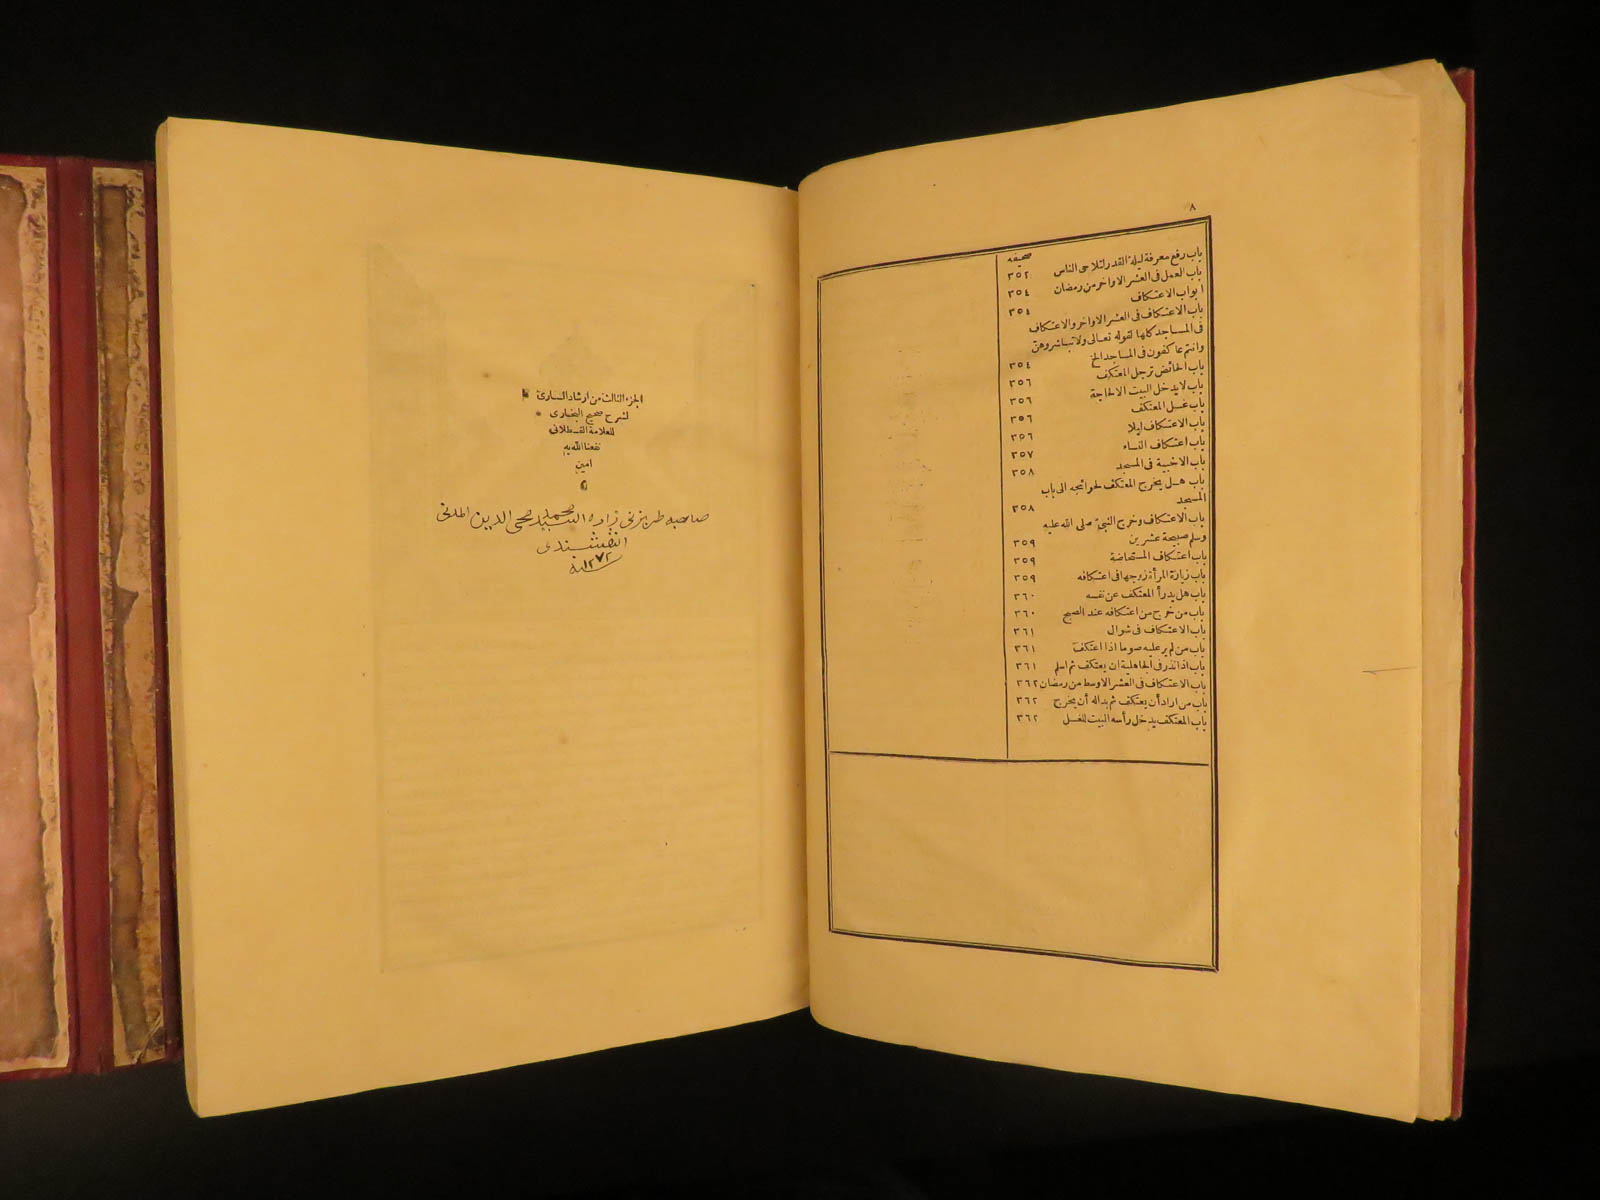 ٨
صحيفه
باب رفع معرفة ليلة القدر لتلاحى الناس ٣٥٢
باب العمل فى العشر الاواخر من رمضان ٣٥٤
ابواب الاعتكاف ٣٥٤
باب الاعتكاف فى العشر الاواخر والاعتكاف
فى المساجد كلها لقوله تعالى ولا تباشروهن
وانتم عاكفون فى المساجد الخ ٣٥٤
باب الحائض ترجل المعتكف ٣٥٦
باب لا يدخل البيت الا لحاجة ٣٥٦
باب غسل المعتكف ٣٥٦
باب الاعتكاف ليلا ٣٥٦
باب اعتكاف النساء ٣٥٧
باب الاخبية فى المسجد ٣٥٨
باب هل يخرج المعتكف لحوائجه الى باب
المسجد ٣٥٨
باب الاعتكاف وخرج النبى صلى الله عليه
وسلم صبيحة عشرين ٣٥٩
باب اعتكاف المستحاضة ٣٥٩
باب زيارة المرأة زوجها فى اعتكافه ٣٥٩
باب هل يدرأ المعتكف عن نفسه ٣٦٠
باب من خرج من اعتكافه عند الصبح ٣٦٠
باب الاعتكاف فى شوال ٣٦١
باب من لم ير عليه صوما اذا اعتكف ٣٦١
باب اذا نذر فى الجاهلية ان يعتكف ثم اسلم ٣٦١
باب الاعتكاف فى العشر الاوسط من رمضان ٣٦٢
باب من اراد أن يعتكف ثم بدا له أن يخرج ٣٦٢
باب المعتكف يدخل رأسه البيت للغسل ٣٦٢
الجزء الثالث من ارشاد السارى
لشرح صحيح البخارى
للعلامة القسطلانى
نفعنا الله به
امين
صاحبه زاده السيد محمد محى الدين المدنى
النقشبندى
سنه ١٢٧٢